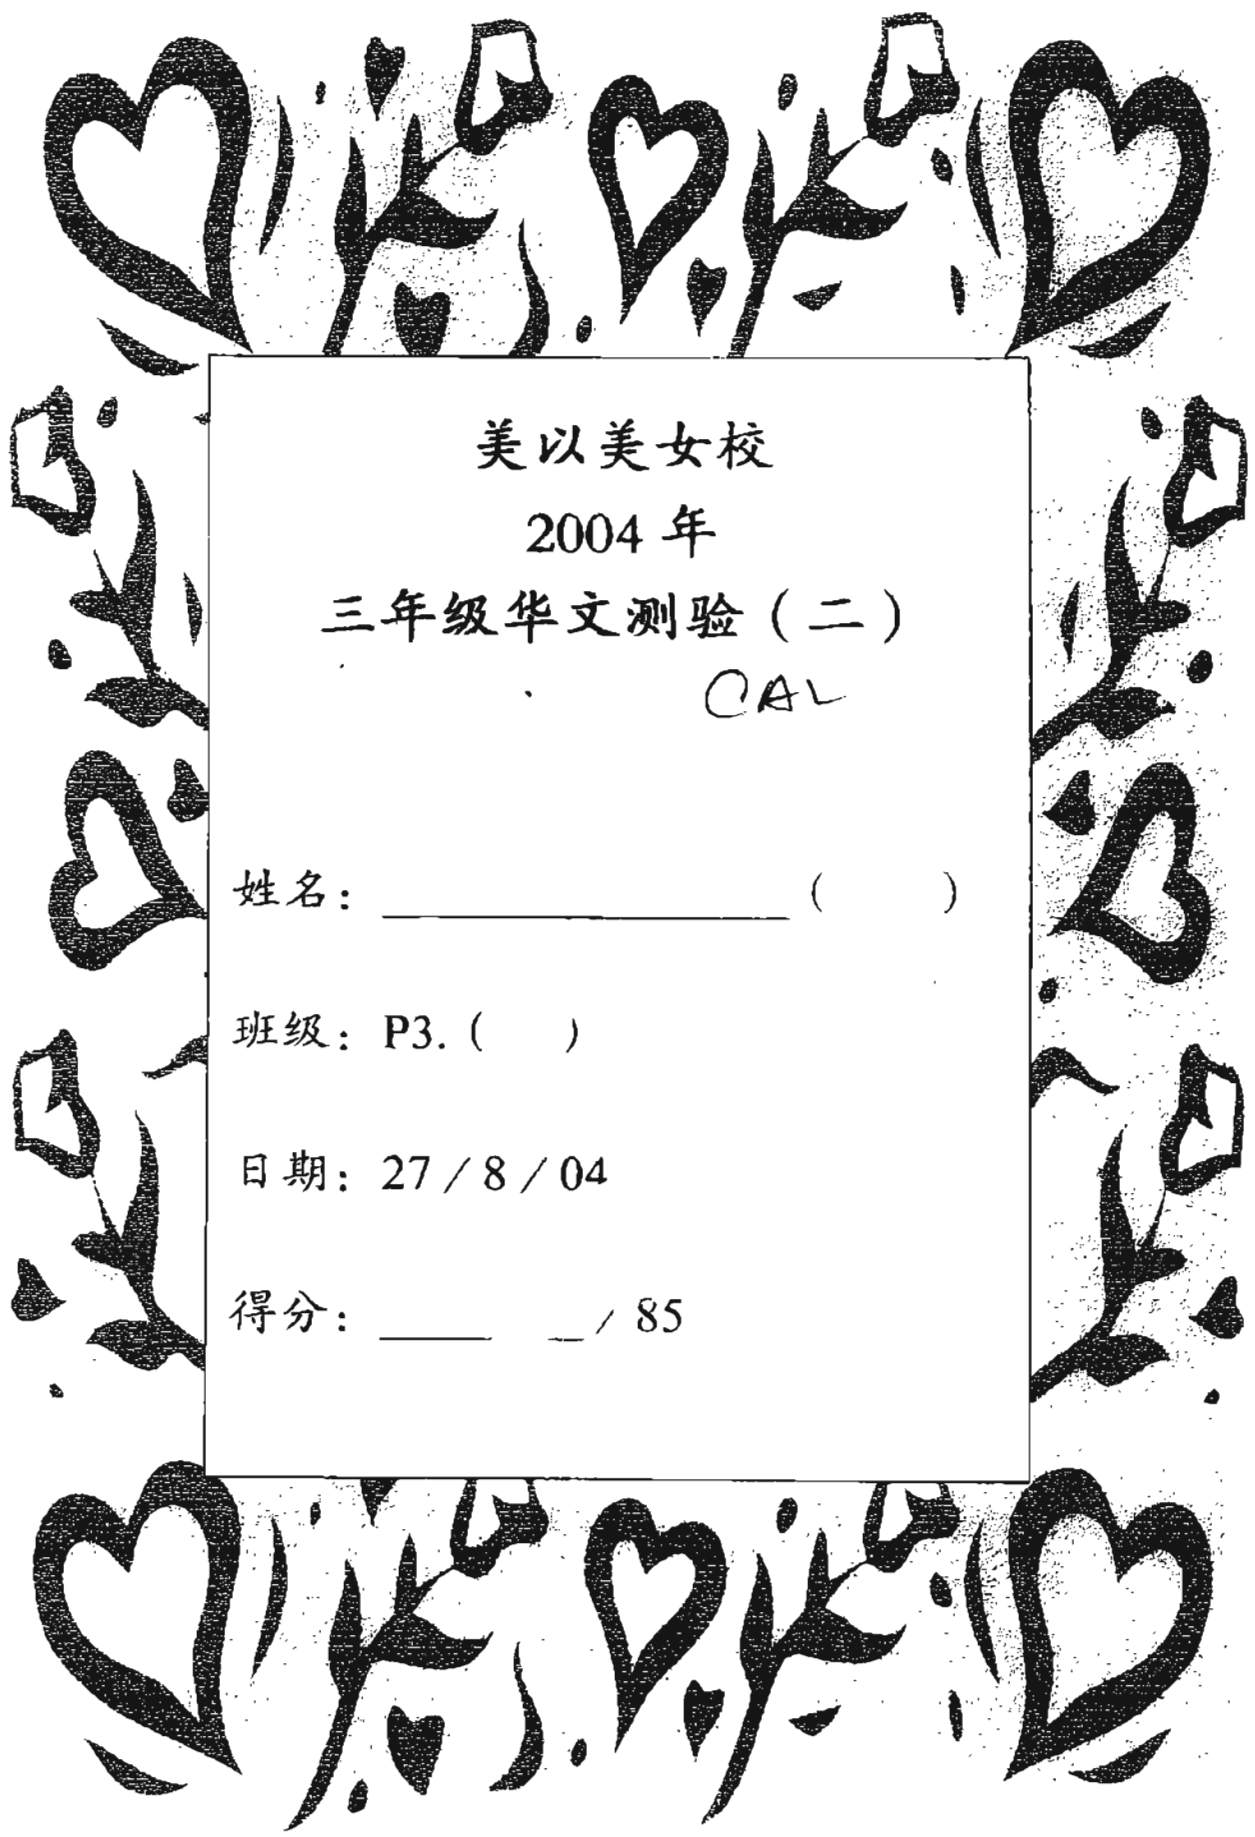 美以美女校
2004 年
三年级华文测验（二）
CAL
姓名： ____________ （ ）
班级： P3.（ ）
日期： 27 / 8 / 04
得分： ____ _ / 85